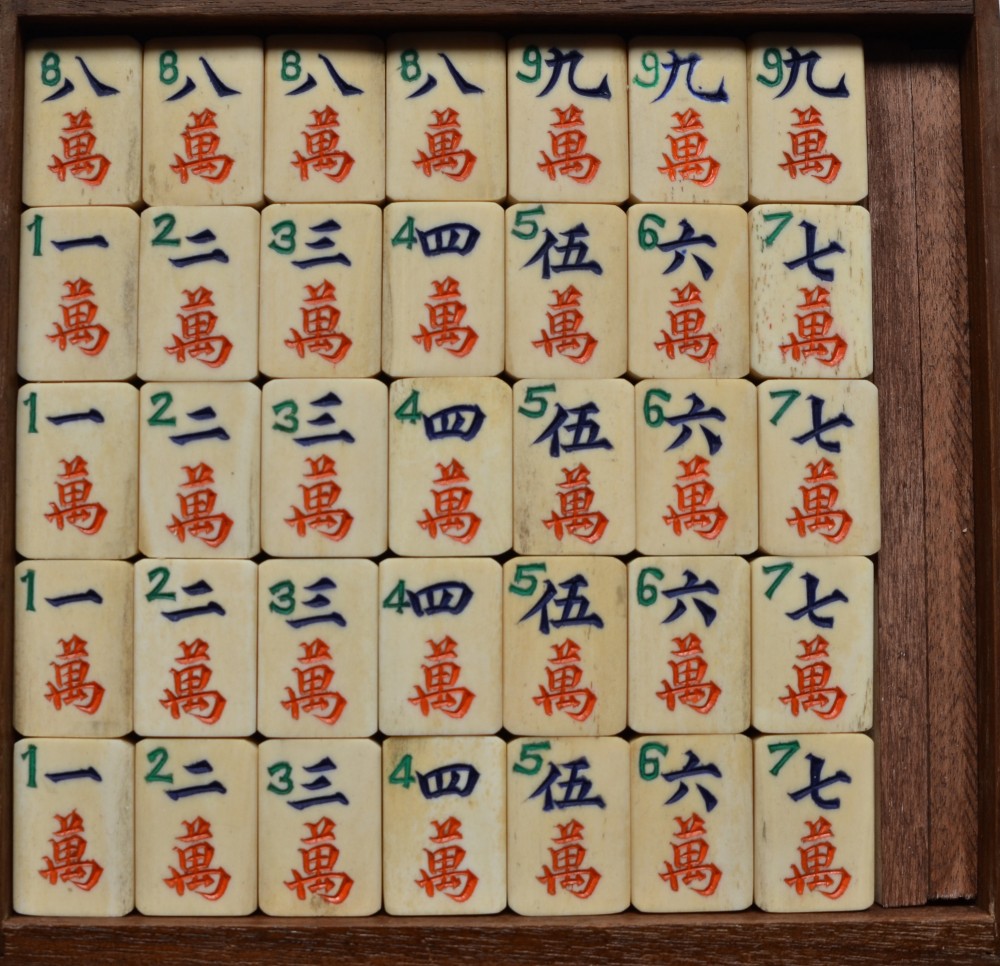 8八 8八 8八 8八 9九 9九 9九
萬 萬 萬 萬 萬 萬 萬
1一 2二 3三 4四 5伍 6六 7七
萬 萬 萬 萬 萬 萬 萬
1一 2二 3三 4四 5伍 6六 7七
萬 萬 萬 萬 萬 萬 萬
1一 2二 3三 4四 5伍 6六 7七
萬 萬 萬 萬 萬 萬 萬
1一 2二 3三 4四 5伍 6六 7七
萬 萬 萬 萬 萬 萬 萬